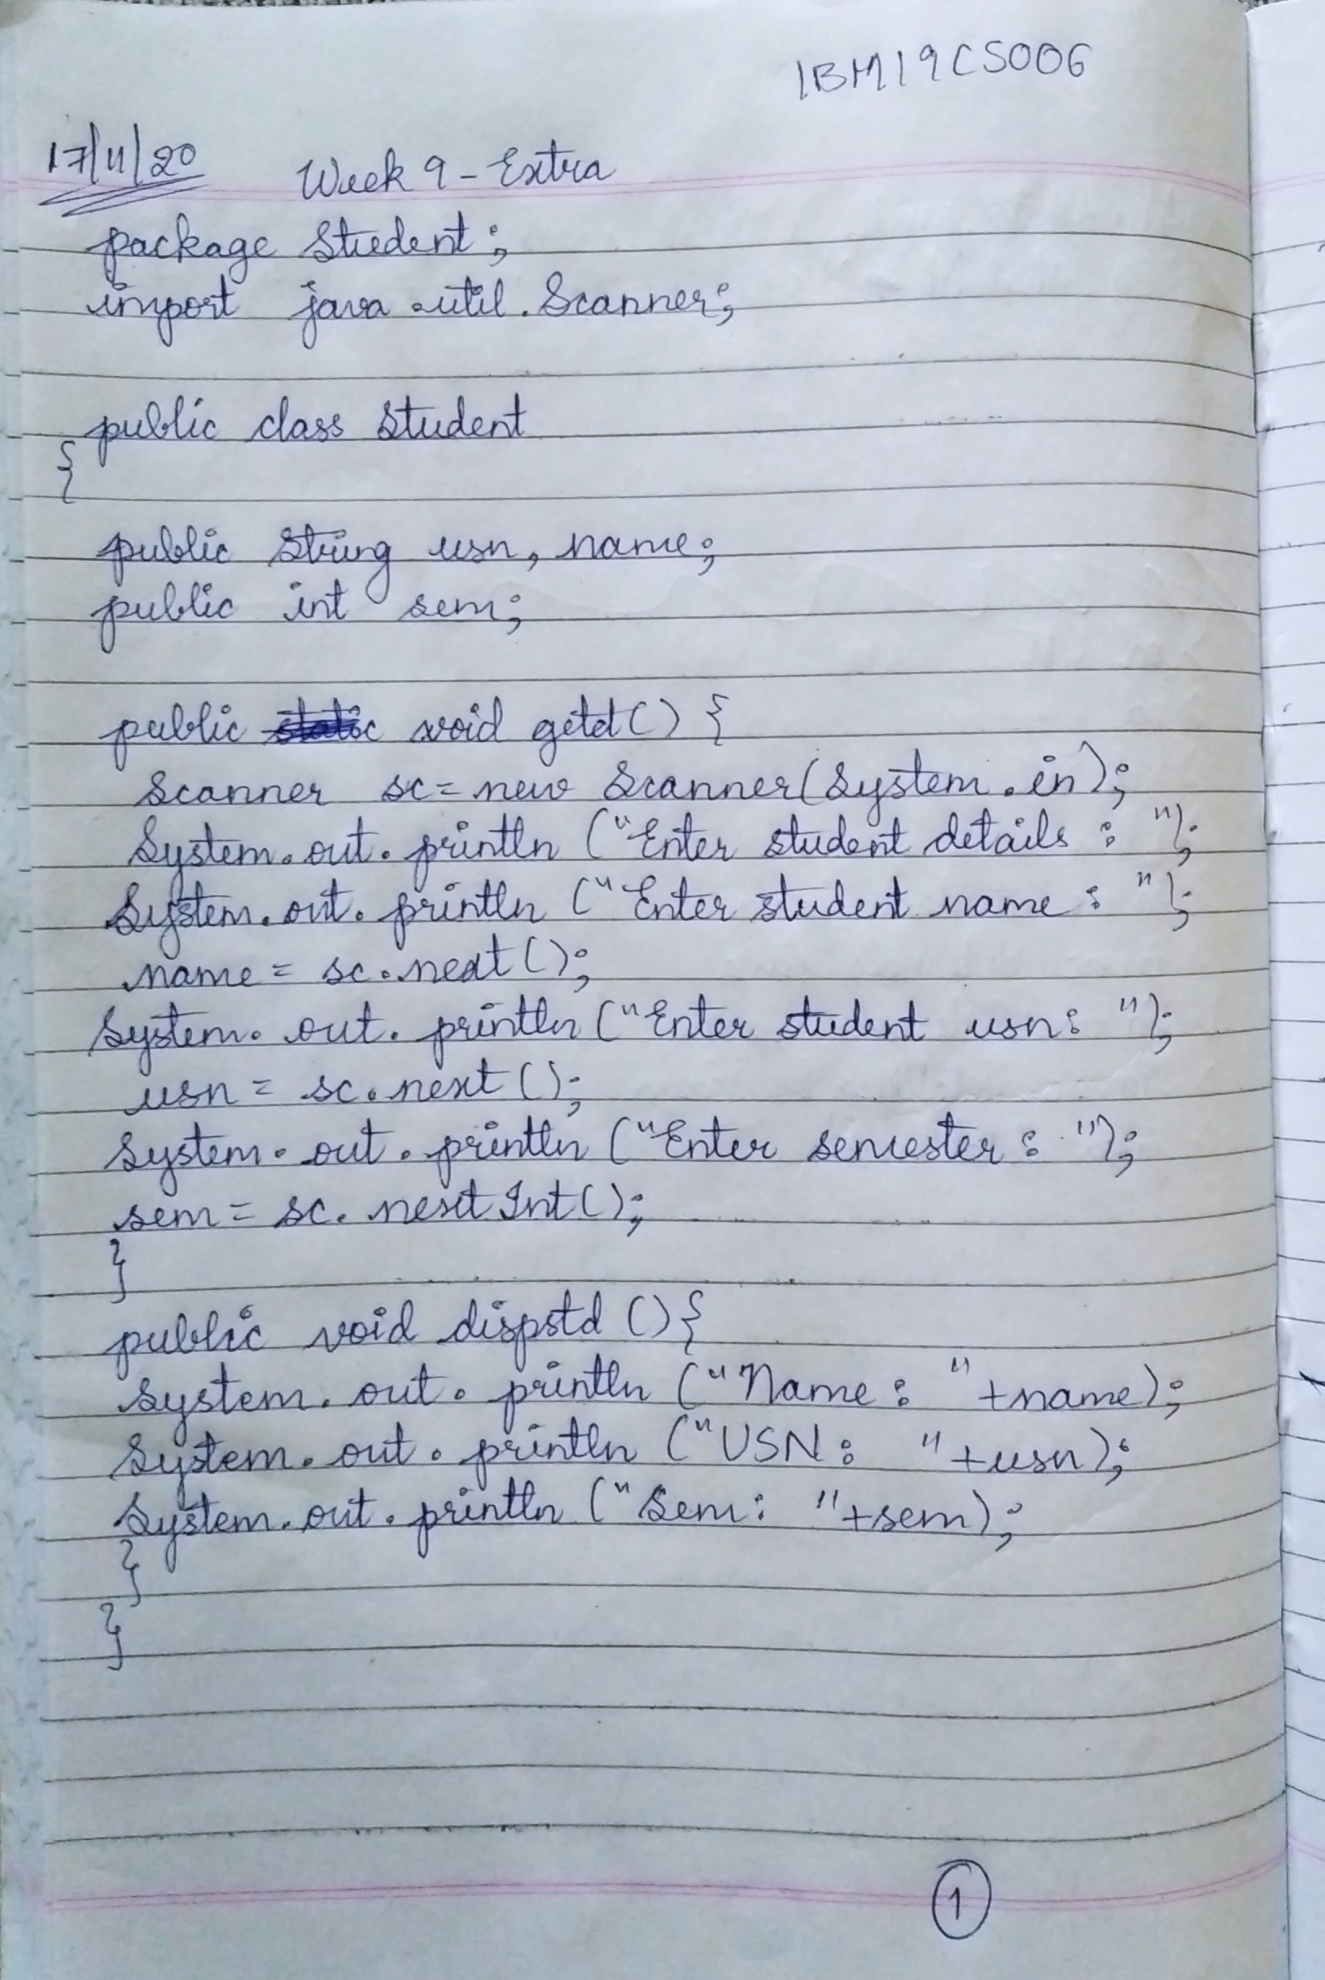 1BM19CS006
17/11/20 Week 9 - Extra
package Student;
import java.util.Scanner;
public class Student
{
public String usn, name;
public int sem;
public static void getd() {
Scanner sc = new Scanner(System.in);
System.out.println ("Enter student details : ");
System.out.println ("Enter student name : ");
name = sc.next();
System.out.println ("Enter student usn: ");
usn = sc.next();
System.out.println ("Enter semester : ");
sem = sc.nextInt();
}
public void dispstd () {
System.out.println ("Name : "+name);
System.out.println ("USN : "+usn);
System.out.println ("Sem : "+sem);
}
}
1